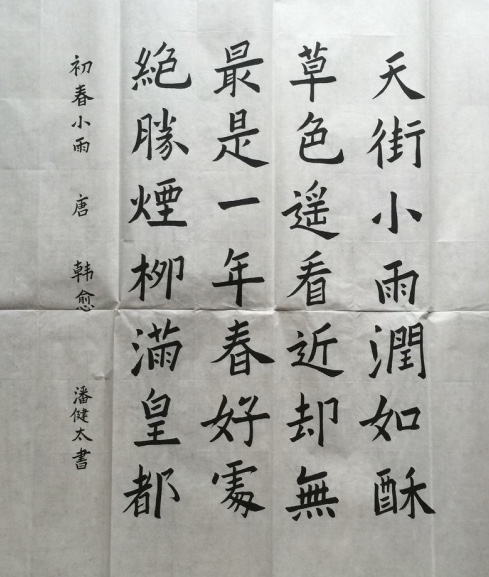 天街小雨潤如酥
草色遥看近却無
最是一年春好處
絶勝煙柳滿皇都
初春小雨 唐 韩愈 潘健太書